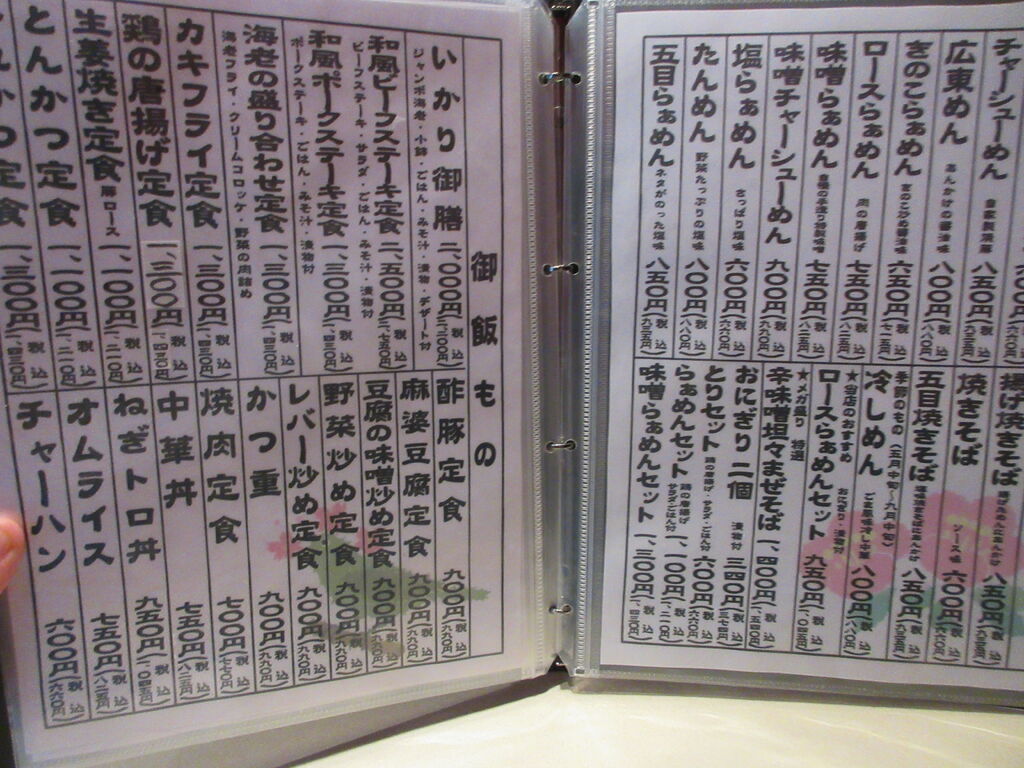 チャーシューめん 自家製焼豚 八五〇円
広東めん あんかけの醤油味 八〇〇円(税込八八〇円)
きのこらぁめん 六五〇円(税込七一五円)
ロースらぁめん 肉の唐揚げ 七五〇円(税込八二五円)
味噌らぁめん 自慢の手造り特製味噌 七五〇円(税込八二五円)
味噌チャーシューめん 九〇〇円(税込九九〇円)
塩らぁめん さっぱり塩味 六〇〇円(税込六六〇円)
たんめん 野菜たっぷりの塩味 八〇〇円(税込八八〇円)
五目らぁめん ネタがのった塩味 八五〇円(税込九三五円)
揚げ焼きそば 八五〇円
焼きそば ソース味 六〇〇円
五目焼きそば 八五〇円
季節のもの(五月中旬〜九月中旬)
冷しめん 八〇〇円(税込八八〇円)
★当店のおすすめ
ロースらぁめんセット おにぎり・漬物付 九五〇円
★メガ盛り 特選
辛味噌坦々まぜそば 一、四〇〇円(税込一、五四〇円)
おにぎり 二個 漬物付 三四〇円(税込三七四円)
とりセット 鶏の唐揚げ・サラダ・ごはん付 六〇〇円(税込六六〇円)
らぁめんセット 鶏の唐揚げ サラダごはん付 一、一〇〇円(税込一、二一〇円)
味噌らぁめんセット 一、三〇〇円(税込一、四三〇円)
御飯もの
いかり御膳 二、〇〇〇円(税込二、二〇〇円)
ジャンボ海老・小鉢・ごはん・みそ汁・漬物・デザート付
和風ビーフステーキ定食 二、五〇〇円(税込二、七五〇円)
ビーフステーキ・サラダ・ごはん・みそ汁・漬物付
和風ポークステーキ定食 一、三〇〇円(税込一、四三〇円)
ポークステーキ・ごはん・みそ汁・漬物付
海老の盛り合わせ定食 一、三〇〇円(税込一、四三〇円)
海老フライ・クリームコロッケ・野菜の肉詰め
カキフライ定食 一、三〇〇円(税込一、四三〇円)
鶏の唐揚げ定食 一、三〇〇円(税込一、四三〇円)
生姜焼き定食 豚ロース 一、一〇〇円(税込一、二一〇円)
とんかつ定食 一、一〇〇円(税込一、二一〇円)
かつ定食 一、三〇〇円(税込一、四三〇円)
酢豚定食 九〇〇円(税込九九〇円)
麻婆豆腐定食 九〇〇円(税込九九〇円)
豆腐の味噌炒め定食 九〇〇円(税込九九〇円)
野菜炒め定食 九〇〇円(税込九九〇円)
レバー炒め定食 九〇〇円(税込九九〇円)
かつ重 九〇〇円(税込九九〇円)
焼肉定食 七〇〇円(税込七七〇円)
中華丼 七五〇円(税込八二五円)
ねぎトロ丼 九五〇円(税込一、〇四五円)
オムライス 七五〇円(税込八二五円)
チャーハン 六〇〇円(税込六六〇円)